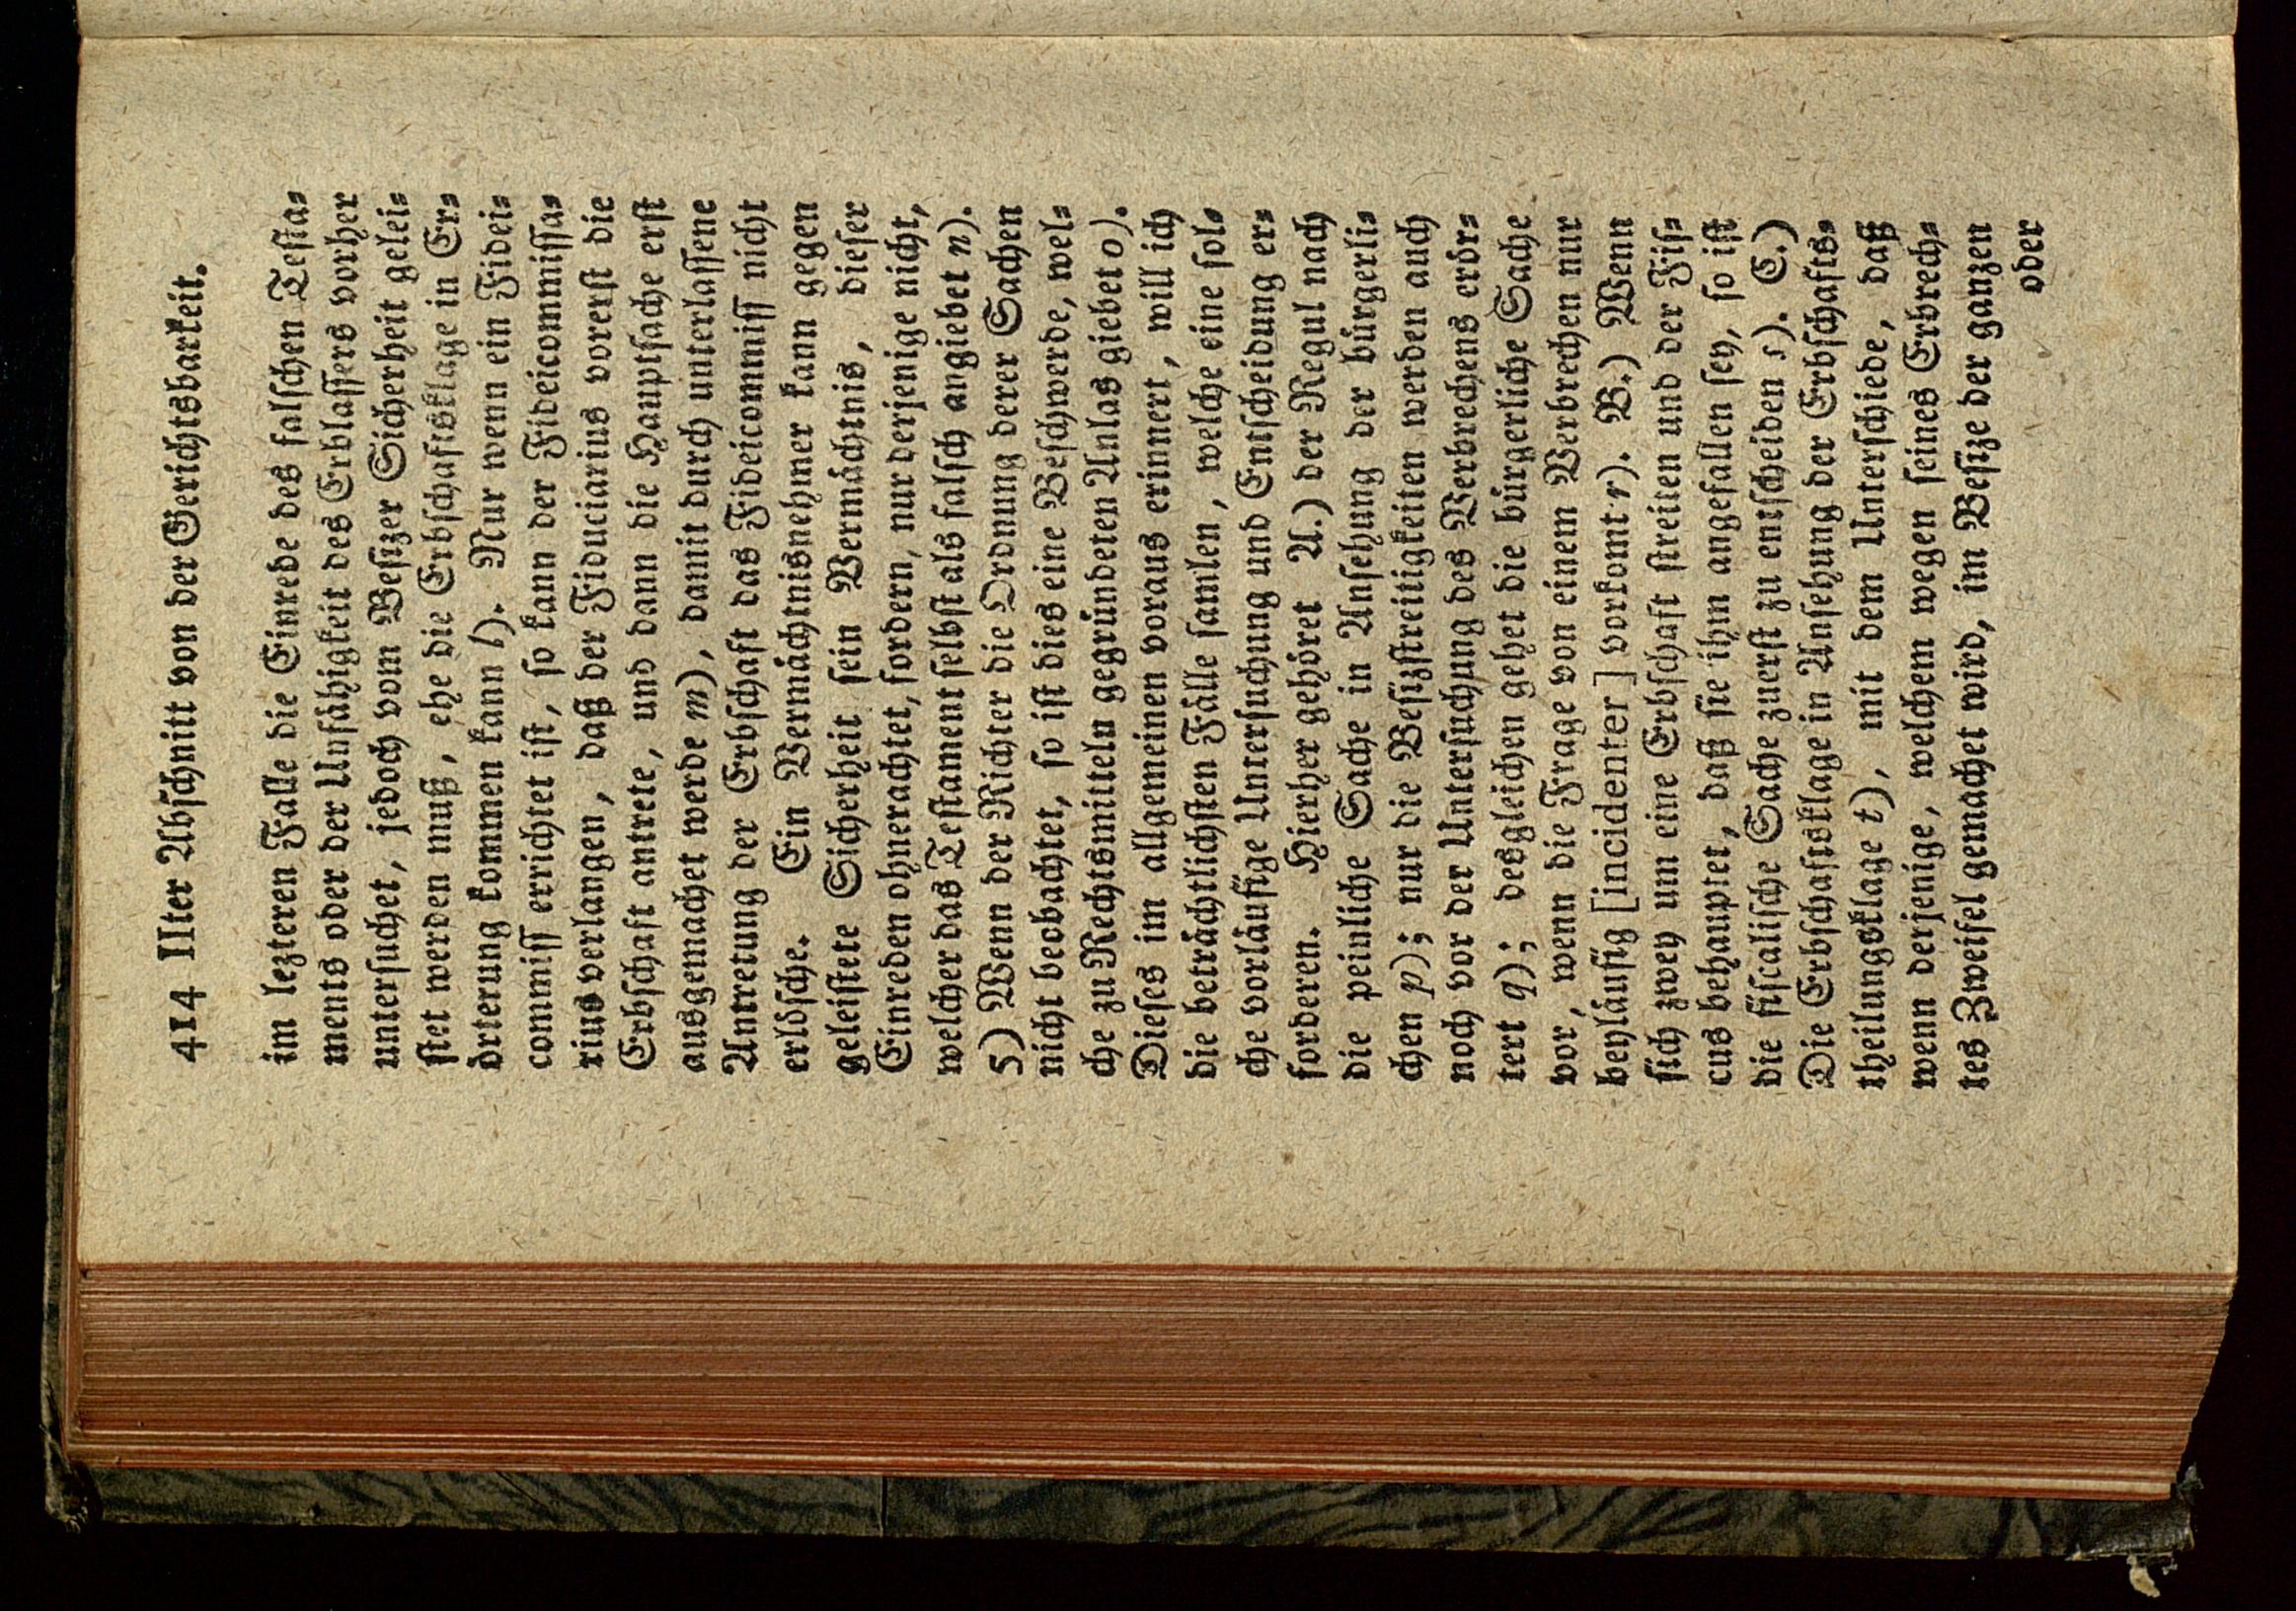 414 IIter Abschnitt von der Gerichtsbarkeit.
im lezteren Falle die Einrede des falschen Testa-
ments oder der Unfähigkeit des Erblassers vorher
untersuchet, jedoch vom Besizer Sicherheit gelei-
stet werden muß, ehe die Erbschaftsklage in Er-
örterung kommen kann l). Nur wenn ein Fidei-
commiss errichtet ist, so kann der Fideicommissa-
rius verlangen, daß der Fiduciarius vorerst die
Erbschaft antrete, und dann die Hauptsache erst
ausgemachet werde m), damit durch unterlassene
Antretung der Erbschaft das Fideicommiss nicht
erlösche. Ein Vermächtnisnehmer kann gegen
geleistete Sicherheit sein Vermächtnis, dieser
Einreden ohnerachtet, fordern, nur derjenige nicht,
welcher das Testament selbst als falsch angiebet n).
5) Wenn der Richter die Ordnung derer Sachen
nicht beobachtet, so ist dies eine Beschwerde, wel-
che zu Rechtsmitteln gegründeten Anlas giebet o).
Dieses im allgemeinen voraus erinnert, will ich
die beträchtlichsten Fälle samlen, welche eine sol-
che vorläufige Untersuchung und Entscheidung er-
forderen. Hierher gehöret A.) der Regul nach
die peinliche Sache in Ansehung der bürgerli-
chen p); nur die Besizstreitigkeiten werden auch
noch vor der Untersuchung des Verbrechens erör-
tert q); desgleichen gehet die bürgerliche Sache
vor, wenn die Frage von einem Verbrechen nur
beyläufig [incidenter] vorkomt r). B.) Wenn
sich zwey um eine Erbschaft streiten und der Fis-
cus behauptet, daß sie ihm angefallen sey, so ist
die fiscalische Sache zuerst zu entscheiden s). C.)
Die Erbschaftsklage in Ansehung der Erbschafts-
theilungsklage t), mit dem Unterschiede, daß
wenn derjenige, welchem wegen seines Erbrech-
tes Zweifel gemachet wird, im Besize der ganzen
oder